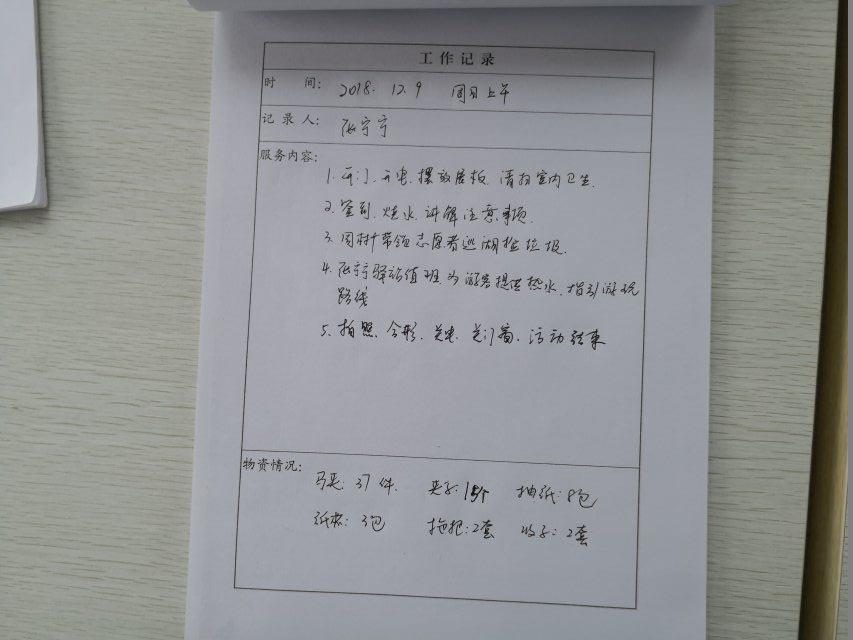 工作记录
时 间: 2018. 12. 9 周日上午
记录人: 张宁宁
服务内容:
1. 开门、开电、摆放展板、清扫室内卫生.
2. 签到、烧水、讲解注意事项.
3. 周树带领志愿者巡湖捡垃圾.
4. 张宁宁驿站值班、为游客提供热水、指引游玩
路线
5. 拍照、合影、关电、关门窗、活动结束
物资情况:
马夹: 37件. 夹子: 15个 抽纸: 8包
纸杯: 3包 拖把: 2套 : 2套